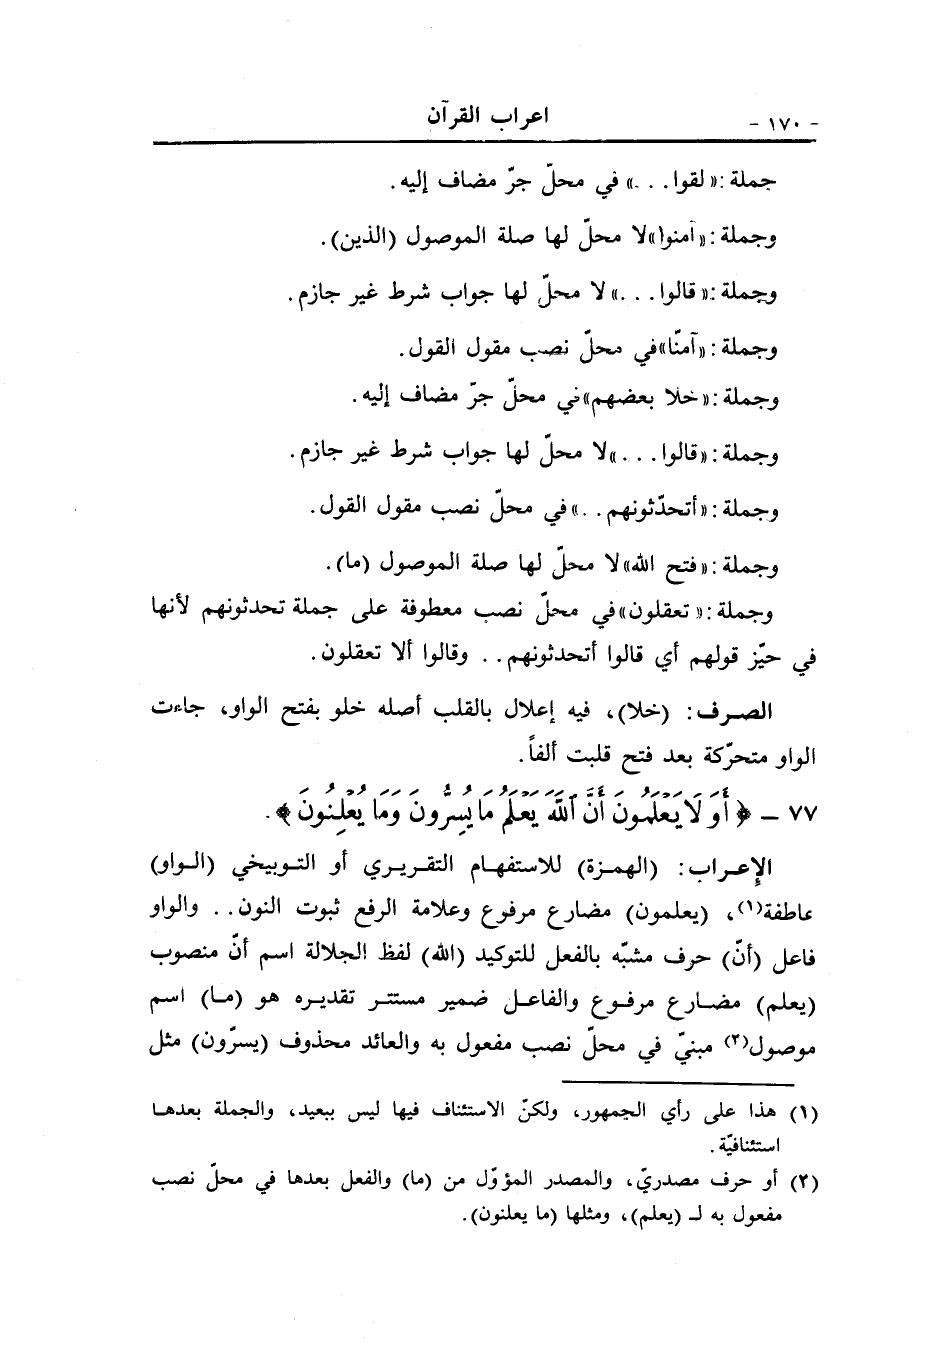 - ١٧٠ - اعراب القرآن
جملة :« لقوا . . .» في محلّ جرّ مضاف إليه .
وجملة : «آمنوا»لا محلّ لها صلة الموصول (الذين) .
وجملة :« قالوا . . .» لا محلّ لها جواب شرط غير جازم .
وجملة : «آمنّا»في محلّ نصب مقول القول .
وجملة :«خلا بعضهم»في محلّ جرّ مضاف إليه .
وجملة : «قالوا . . .»لا محلّ لها جواب شرط غير جازم .
وجملة :«أتحدّثونهم . .» في محلّ نصب مقول القول .
وجملة :«فتح الله»لا محلّ لها صلة الموصول (ما) .
وجملة :« تعقلون»في محلّ نصب معطوفة على جملة تحدثونهم لأنها
في حيّز قولهم أي قالوا أتحدثونهم . . وقالوا ألا تعقلون .
الصرف : (خلا) ، فيه إعلال بالقلب أصله خلو بفتح الواو، جاءت
الواو متحرّكة بعد فتح قلبت ألفاً .
٧٧ - ﴿ أَوَ لَا يَعْلَمُونَ أَنَّ اللَّهَ يَعْلَمُ مَا يُسِرُّونَ وَمَا يُعْلِنُونَ ﴾ .
الإعراب : (الهمزة) للاستفهام التقريري أو التوبيخي (الواو)
عاطفة(١) ، (يعلمون) مضارع مرفوع وعلامة الرفع ثبوت النون . . والواو
فاعل (أنّ) حرف مشبّه بالفعل للتوكيد (الله) لفظ الجلالة اسم أنّ منصوب
(يعلم) مضارع مرفوع والفاعل ضمير مستتر تقديره هو (ما) اسم
موصول(٢) مبنيّ في محلّ نصب مفعول به والعائد محذوف (يسرّون) مثل
(١) هذا على رأي الجمهور، ولكنّ الاستئناف فيها ليس ببعيد، والجملة بعدها
استئنافيّة .
(٢) أو حرف مصدريّ، والمصدر المؤوّل من (ما) والفعل بعدها في محلّ نصب
مفعول به لـ (يعلم) ، ومثلها (ما يعلنون) .